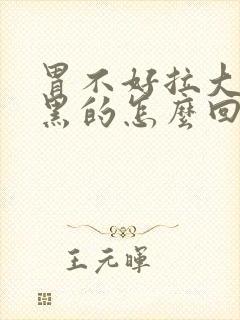 胃不好拉大
黑的怎麼回
王元暉